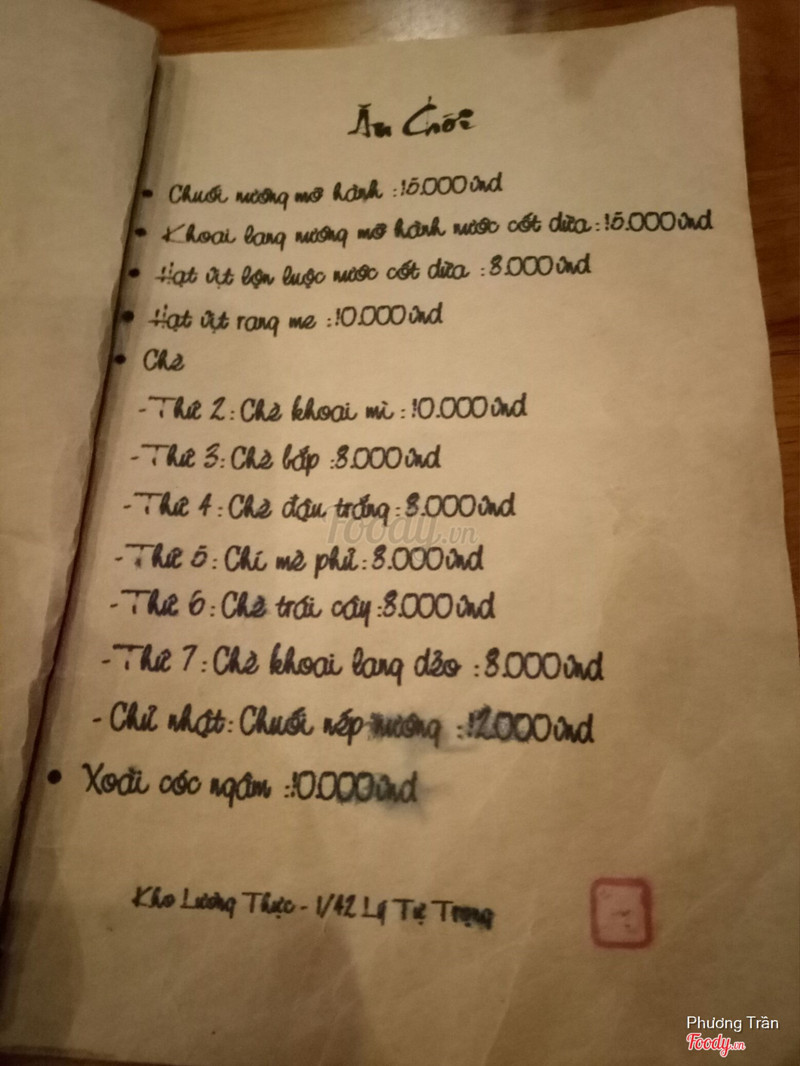 Ăn Chơi
• Chuối nướng mỡ hành : 15.000vnđ
• Khoai lang nướng mỡ hành nước cốt dừa : 15.000vnđ
• Hạt vịt lộn luộc nước cốt dừa : 8.000vnđ
• Hạt vịt rang me : 10.000vnđ
• Chè
- Thứ 2 : Chè khoai mì : 10.000vnđ
- Thứ 3 : Chè bắp : 8.000vnđ
- Thứ 4 : Chè đậu trắng : 8.000vnđ
- Thứ 5 : Chí mè phủ : 8.000vnđ
- Thứ 6 : Chè trái cây : 8.000vnđ
- Thứ 7 : Chè khoai lang dẻo : 8.000vnđ
- Chủ nhật : Chuối nếp nướng : 12.000vnđ
• Xoài cóc ngâm : 10.000vnđ
Kho Lương Thực - 1/42 Lý Tự Trọng
Foody.vn
Phương Trần
Foody.vn